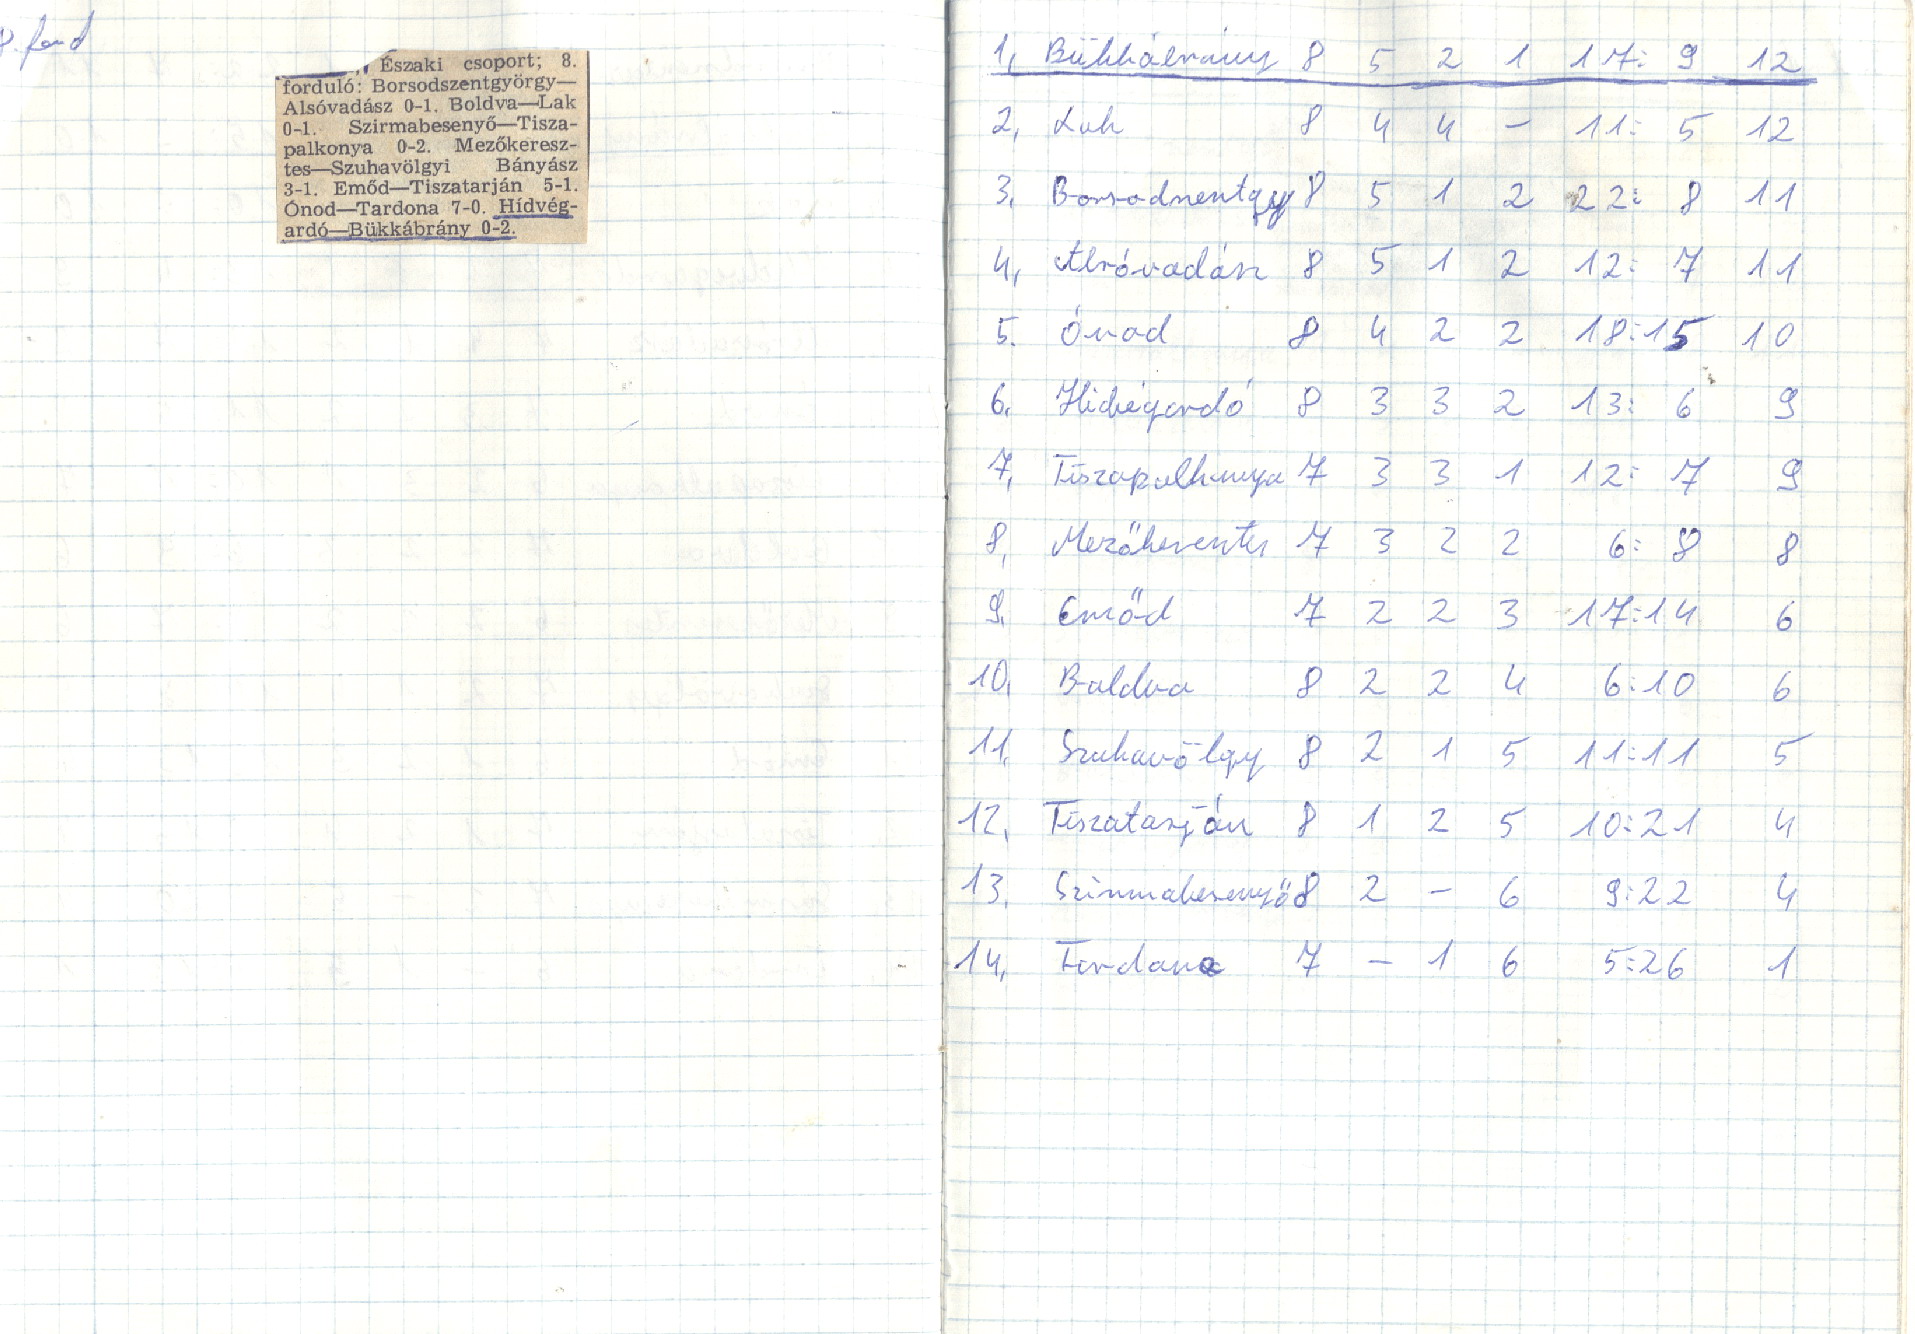 8. ford
Északi csoport; 8.
forduló: Borsodszentgyörgy—
Alsóvadász 0-1. Boldva—Lak
0-1. Szirmabesenyő—Tisza-
palkonya 0-2. Mezőkeresz-
tes—Szuhavölgyi Bányász
3-1. Emőd—Tiszatarján 5-1.
Ónod—Tardona 7-0. Hídvég-
ardó—Bükkábrány 0-2.
1, Bükkábrány 8 5 2 1 17: 9 12
2, Lak 8 4 4 — 11: 5 12
3, Borsodszentgy 8 5 1 2 22: 8 11
4, Alsóvadász 8 5 1 2 12: 7 11
5. Ónod 8 4 2 2 18:15 10
6. Hidvégardó 8 3 3 2 13: 6 9
7, Tiszapalkonya 7 3 3 1 12: 7 9
8, Mezőkeresztes 7 3 2 2 6: 8 8
9. Emőd 7 2 2 3 17:14 6
10, Boldva 8 2 2 4 6:10 6
11, Szuhavölgy 8 2 1 5 11:11 5
12, Tiszatarján 8 1 2 5 10:21 4
13, Szirmabesenyő 8 2 — 6 9:22 4
14, Tardona 7 — 1 6 5:26 1